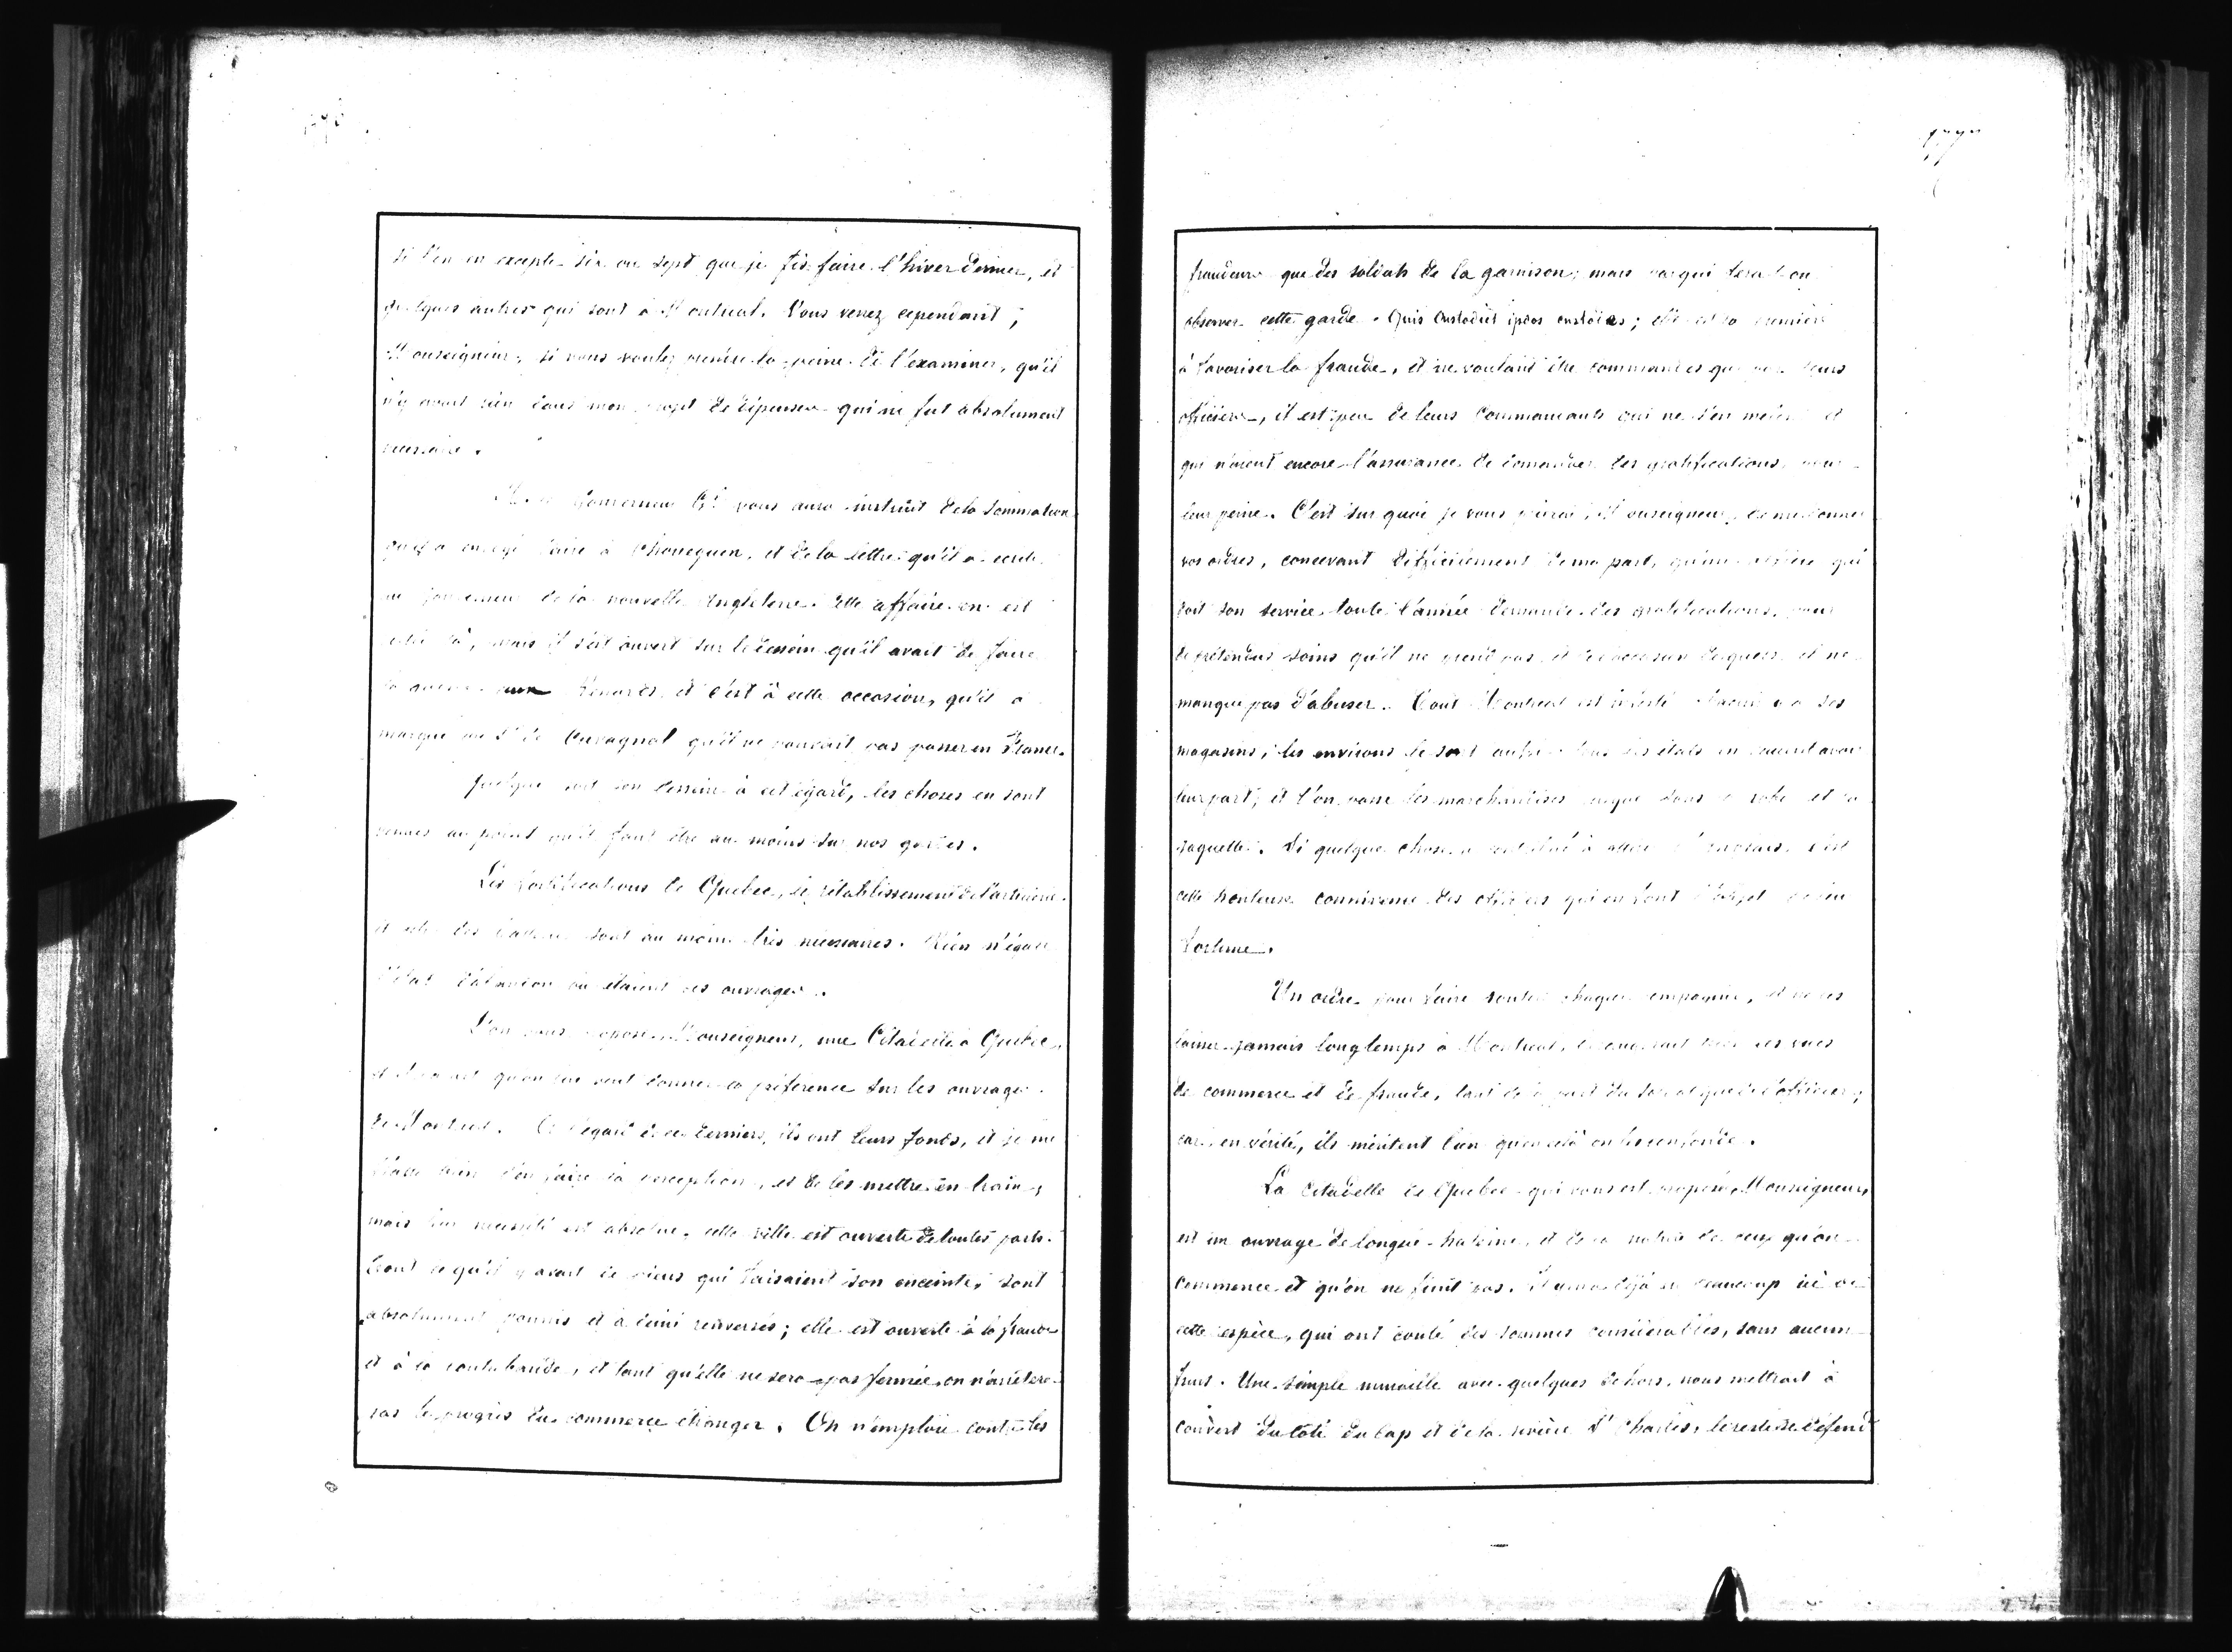 si l'on en excepte six ou sept que je fis faire l'hiver dernier, et
quelques autres qui sont à Montreal. Vous verrez cependant,
Monseigneur, si vous voulez prendre la peine de l'examiner, qu'il
n'y avait rien dans mon projet de dépenses qui ne fut absolument
necessaire.
M. le Gouverneur Gl vous aura instruit de la sommation
qu'il a envoyé faire à Chouëguen, et de la lettre qu'il a écrite
au gouverneur de la nouvelle Angleterre. Cette affaire en est
restée là, mais il s'est ouvert sur le dessein qu'il avait de faire
la guerre aux Renards, et c'est à cette occasion, qu'il a
marqué au Sr de Cavagnal qu'il ne pouvait pas passer en France.
Quelque soit son dessein à cet égard, les choses en sont
venues au point qu'il faut être au moins sur nos gardes.
Les fortifications de Quebec, le rétablissement de l'artillerie
et celui des batteries sont au moins très necessaires. Rien n'égale
l'état d'abandon où étaient ces ouvrages.
L'on vous propose, Monseigneur, une Citadelle à Quebec,
qu'on lui veut donner la préférence sur les ouvrages
de Montreal. A l'égard de ces derniers, ils ont leurs fonds, et je me
bien d'en faire la perception, et de les mettre en train,
mais leur necessité est absolue, cette ville est ouverte de toutes parts.
Tout ce qu'il y avait de pieux qui faisaient son enceinte, sont
absolument pourris et à demi renversés; elle est ouverte à la fraude
et à la contrebande, et tant qu'elle ne sera pas fermée, on n'arrêtera
pas le progrès du commerce étranger. On n'emploie contre les
fraudeurs que des soldats de la garnison; mais par qui fera-t-on
observer cette garde. Quis Custodiet ipsos custodes; elle est la première
à favoriser la fraude, et ne voulant être commandés que par leurs
officiers, il est peu de leurs Commandants qui ne s'en mêlent et
qui n'aient encore l'assurance de demander des gratifications pour
leur peine. C'est sur quoi je vous prierai, Monseigneur, de me donner
vos ordres, concevant difficilement de ma part, qu'un officier qui
fait son service toute l'année demande des gratifications, pour
de prétendus soins qu'il ne prend pas, et des occasions desquels il ne
manque pas d'abuser. Tout Montreal est infecté chacun y a ses
magasins, les environs le sont aussi tous les états en veulent avoir
leur part, et l'on passe les marchandises jusque sous la robe et la
jaquette. Si quelque chose a contribué à attirer l'anglais, c'est
cette honteuse connivence des officiers qui en font l'objet de leur
fortune.
Un ordre pour faire rouler chaque compagnie, et ne les
laisser jamais longtemps à Montreal, romprait toutes ces vues
de commerce et de fraude, tant de la part du soldat que de l'officier,
car, en vérité, ils méritent bien qu'en cela on les confonde.
La Citadelle de Quebec qui vous est proposée, Monseigneur,
est un ouvrage de longue haleine, et de la nature de ceux qu'on
commence et qu'on ne finit pas. Il y en a déjà eu beaucoup ici de
cette espèce, qui ont couté des sommes considerables, sans aucun
fruit. Une simple muraille avec quelques dehors, nous mettrait à
couvert du coté du Cap et de la rivière St Charles, le reste se défend